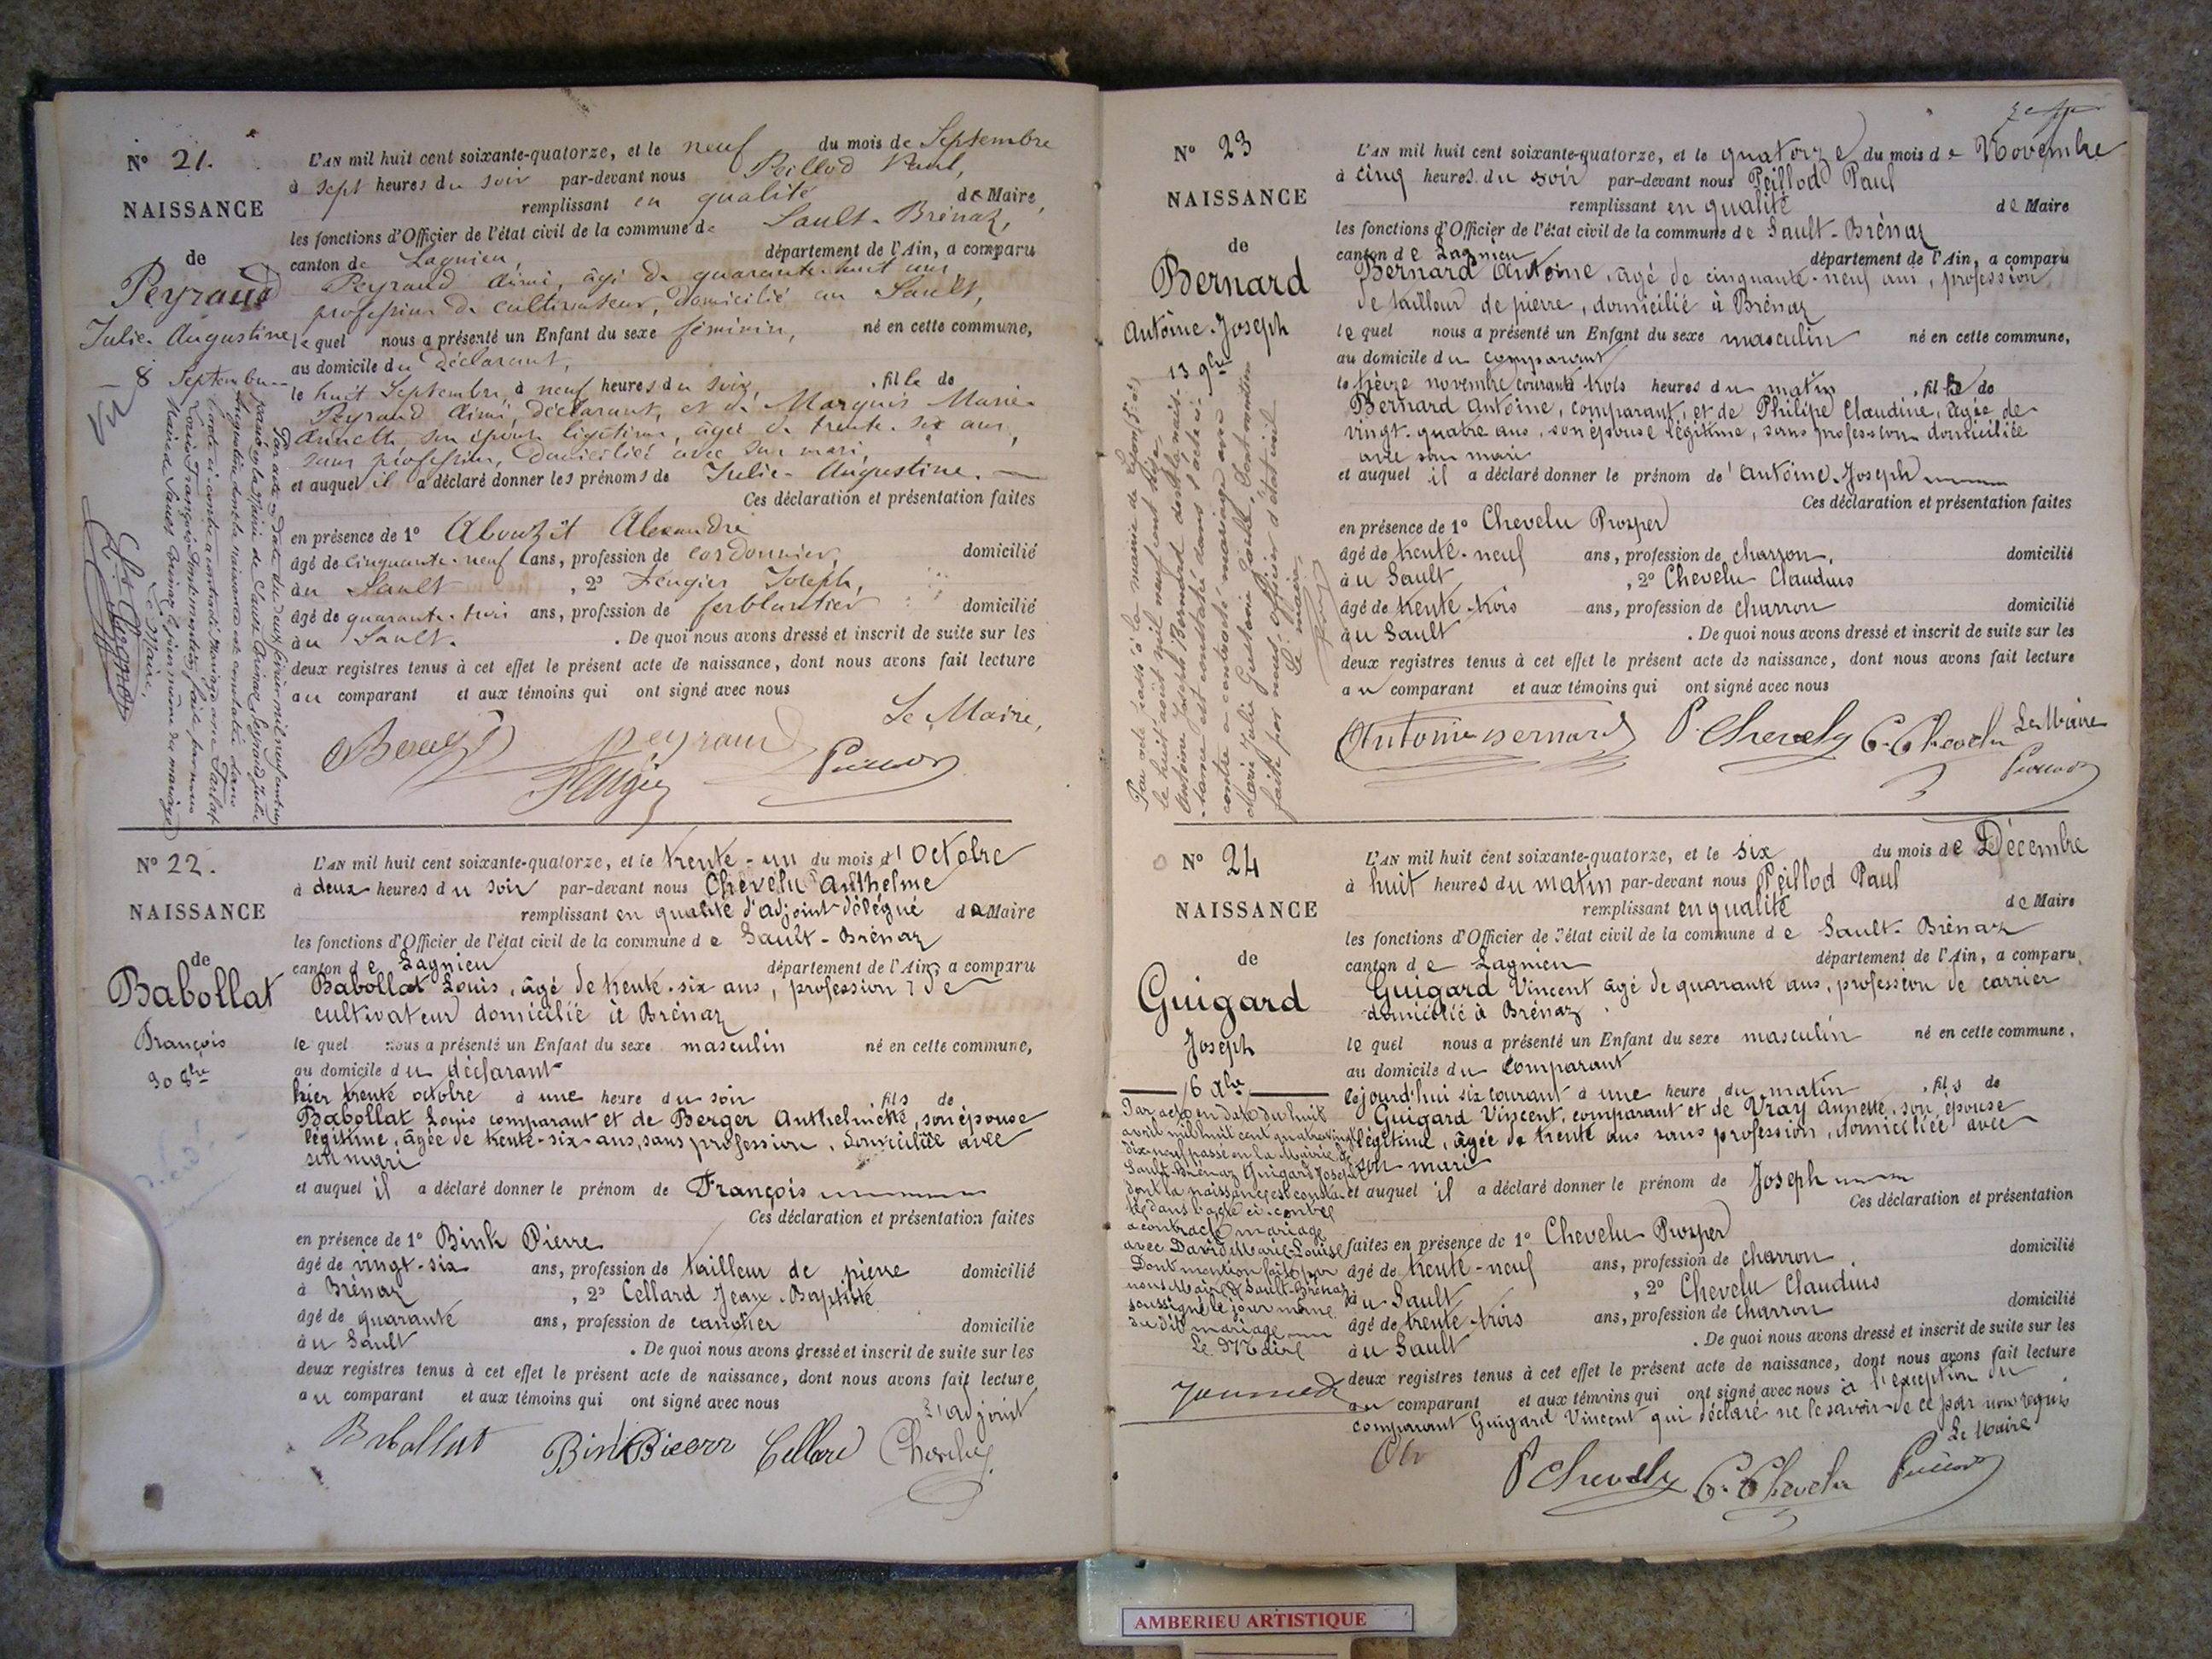 N° 21.
NAISSANCE
de
Peyraud
Julie-Augustine
8 Septembre
Vu
L'AN mil huit cent soixante-quatorze, et le neuf du mois de Septembre
à sept heures du soir par-devant nous Peillod Paul,
remplissant en qualité de Maire,
les fonctions d'Officier de l'état civil de la commune de Sault-Brénaz,
canton de Lagnieu, département de l'Ain, a comparu
Peyraud Aimé, âgé de quarante-huit ans,
profession de cultivateur, domicilié au Sault,
lequel nous a présenté un Enfant du sexe féminin, né en cette commune,
au domicile du déclarant,
le huit Septembre, à neuf heures du soir, fille de
Peyraud Aimé, déclarant, et de Marquis Marie-
Annette son épouse légitime, âgée de trente-six ans,
sans profession, domiciliée avec son mari,
et auquel il a déclaré donner les prénoms de Julie-Augustine.
Ces déclaration et présentation faites
en présence de 1° Abouzit Alexandre
âgé de cinquante-neuf ans, profession de cordonnier, domicilié
au Sault, 2° Feugier Joseph,
âgé de quarante-trois ans, profession de ferblantier domicilié
au Sault. De quoi nous avons dressé et inscrit de suite sur les
deux registres tenus à cet effet le présent acte de naissance, dont nous avons fait lecture
au comparant et aux témoins qui ont signé avec nous
Le Maire,
Peyraud
Feugier
Peillod
Par acte en date du deux février mil neuf cent
passé en la Mairie de Sault-Brénaz, Peyraud Julie
Augustine dont la naissance est constatée dans
l'acte ci-contre a contracté Mariage avec
Louis François dont mention faite par nous
Maire de Sault-Brénaz le jour même du mariage
Le Maire,
N° 22.
NAISSANCE
de
Babollat
François
30 8bre
L'AN mil huit cent soixante-quatorze, et le trente-un du mois d'Octobre
à deux heures du soir par-devant nous Chevelu Anthelme
remplissant en qualité d'adjoint délégué de Maire
les fonctions d'Officier de l'état civil de la commune de Sault-Brénaz
canton de Lagnieu département de l'Ain, a comparu
Babollat Louis, âgé de trente-six ans, profession de
cultivateur domicilié à Brénaz
lequel nous a présenté un Enfant du sexe masculin né en cette commune,
au domicile du déclarant
hier trente octobre à une heure du soir fils de
Babollat Louis comparant et de Berger Anthelmette, son épouse
légitime, âgée de trente-six ans, sans profession, domiciliée avec
son mari
et auquel il a déclaré donner le prénom de François
Ces déclaration et présentation faites
en présence de 1° Bink Pierre
âgé de vingt-six ans, profession de tailleur de pierre domicilié
à Brénaz, 2° Cellard Jean-Baptiste
âgé de quarante ans, profession de domicilié
au Sault. De quoi nous avons dressé et inscrit de suite sur les
deux registres tenus à cet effet le présent acte de naissance, dont nous avons fait lecture
au comparant et aux témoins qui ont signé avec nous
L'adjoint
Babollat Bink Pierre Cellard Chevelu
N° 23
NAISSANCE
de
Bernard
Antoine-Joseph
13 9bre
L'AN mil huit cent soixante-quatorze, et le quatorze du mois de Novembre
à cinq heures du soir par-devant nous Peillod Paul
remplissant en qualité de Maire
les fonctions d'Officier de l'état civil de la commune de Sault-Brénaz
canton de Lagnieu département de l'Ain, a comparu
Bernard Antoine, âgé de cinquante-neuf ans, profession
de tailleur de pierre, domicilié à Brénaz
lequel nous a présenté un Enfant du sexe masculin né en cette commune,
au domicile du comparant
le treize novembre courant à trois heures du matin, fils de
Bernard Antoine, comparant, et de Philipe Claudine, âgée de
vingt-quatre ans, son épouse légitime, sans profession domiciliée
avec son mari
et auquel il a déclaré donner le prénom de Antoine-Joseph
Ces déclaration et présentation faites
en présence de 1° Chevelu Prosper
âgé de trente-neuf ans, profession de charron, domicilié
au Sault, 2° Chevelu Claudius
âgé de trente-trois ans, profession de charron domicilié
au Sault. De quoi nous avons dressé et inscrit de suite sur les
deux registres tenus à cet effet le présent acte de naissance, dont nous avons fait lecture
au comparant et aux témoins qui ont signé avec nous
Antoine Bernard P. Chevelu C. Chevelu Le Maire
Peillod
Par acte passé à la mairie de Lyon
le huit août mil neuf cent
Antoine Joseph Bernard dont la nais-
-sance est constatée dans l'acte ci-
contre a contracté mariage avec
Marie Julie, dont mention
faite par nous officier d'état civil
Le maire
N° 24
NAISSANCE
de
Guigard
Joseph
6 Xbre
L'AN mil huit cent soixante-quatorze, et le six du mois de Décembre
à huit heures du matin par-devant nous Peillod Paul
remplissant en qualité de Maire
les fonctions d'Officier de l'état civil de la commune de Sault-Brénaz
canton de Lagnieu département de l'Ain, a comparu
Guigard Vincent âgé de quarante ans, profession de carrier
domicilié à Brénaz
lequel nous a présenté un Enfant du sexe masculin né en cette commune,
au domicile du comparant
cejourd'hui six courant à une heure du matin, fils de
Guigard Vincent, comparant et de Vray Annette, son épouse
légitime, âgée de trente ans sans profession, domiciliée avec
son mari
et auquel il a déclaré donner le prénom de Joseph
Ces déclaration et présentation
faites en présence de 1° Chevelu Prosper
âgé de trente-neuf ans, profession de charron, domicilié
au Sault, 2° Chevelu Claudius
âgé de trente-trois ans, profession de charron domicilié
au Sault. De quoi nous avons dressé et inscrit de suite sur les
deux registres tenus à cet effet le présent acte de naissance, dont nous avons fait lecture
au comparant et aux témoins qui ont signé avec nous à l'exception du
comparant Guigard Vincent qui a déclaré ne le savoir de ce par nous requis
Le Maire
P Chevelu C. Chevelu Peillod
Par acte en date du huit
avril mil huit cent quatre vingt
dix neuf passé en la Mairie de
Sault-Brénaz Guigard Joseph
dont la naissance est consta-
tée dans l'acte ci-contre
a contracté mariage
avec David Marie-Louise
Dont mention faite par
nous Maire de Sault-Brénaz
soussigné le jour même
du dit mariage
Le Maire
AMBERIEU ARTISTIQUE